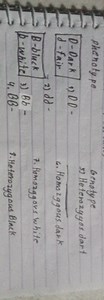 Phenotype Genotype
D-Dark 1) DD- 5) Heterozygos dark
d-fair 2) dd- 6. Homozygous dark
B-black 7. Homozygous White
b-white 3) Bb-
4. BB- Heterozygous Black